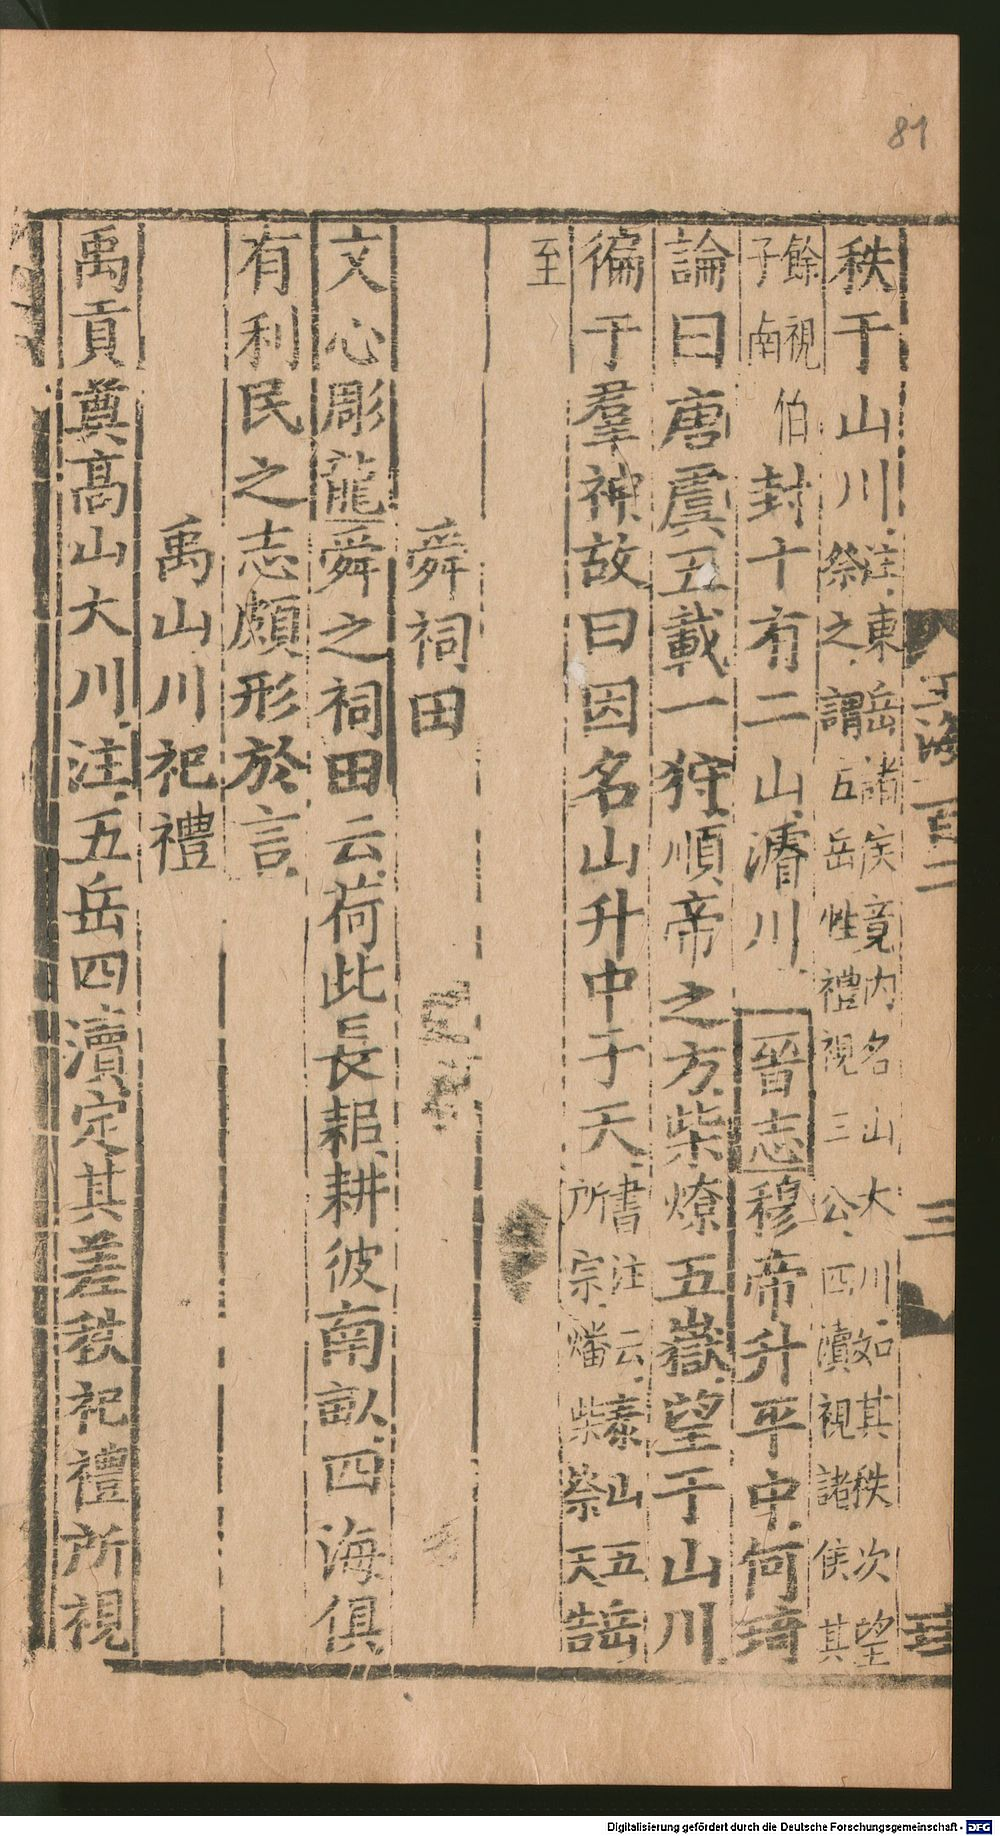 81
玉海一百二
三
秩于山川注東岳諸侯竟內名山大川如其秩次望祭之謂五岳牲禮視三公四瀆視諸侯其
餘視伯子南封十有二山濬川晉志穆帝升平中何琦
論曰唐虞五載一狩順帝之方柴燎五嶽望于山川
徧于羣神故曰因名山升中于天書注云泰山五岳所宗燔柴祭天告
至
舜祠田
文心彫龍舜之祠田云荷此長耜耕彼南畝四海俱
有利民之志頗形於言
禹山川祀禮
禹貢奠高山大川注五岳四瀆定其差秩祀禮所視
Digitalisierung gefördert durch die Deutsche Forschungsgemeinschaft - DFG